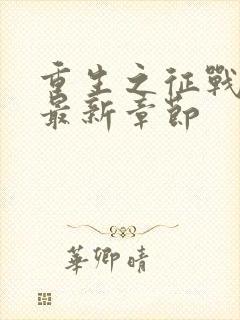 重生之征戰
最新章節
華卿晴